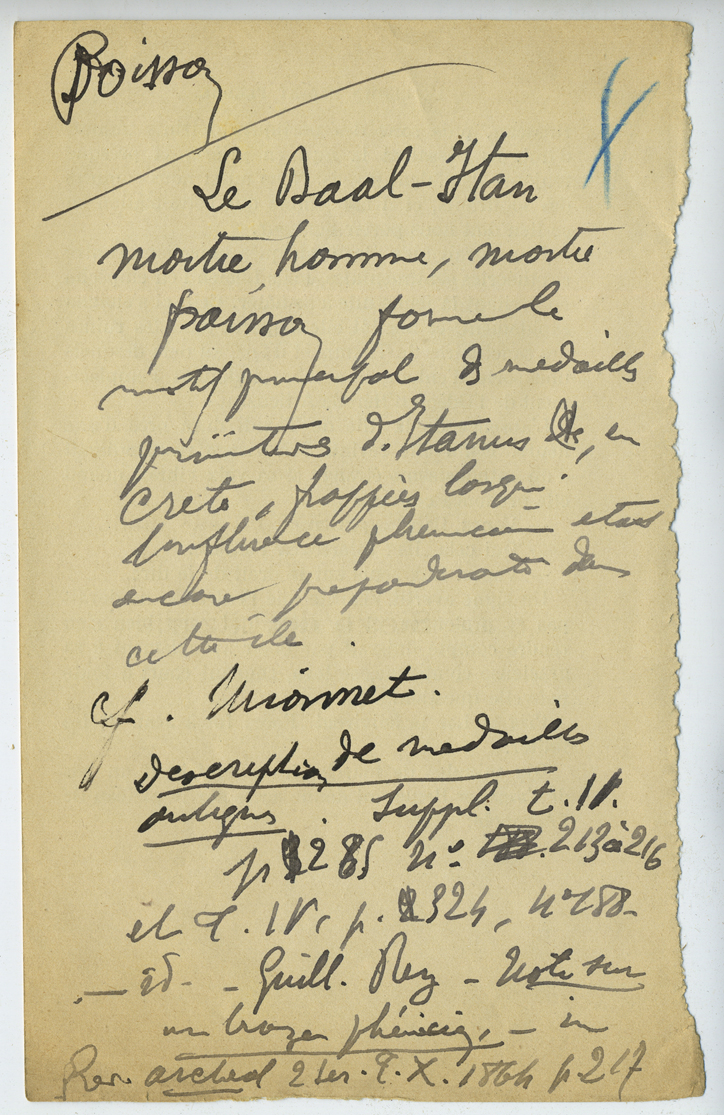 Poisson
Le Baal-Itan
moitié homme, moitié
poisson forme le
motif principal des medailles
primitives d'Itanus, en
Crete, frappées lorsque
l'influence phenicienne etait
encore preponderante dans
cette île.
Cf. Mionnet.
Description de medailles
antiques. Suppl. t. IV.
p 285 n° 213 à 216
et T. IV, p. 324, n° 188
— id - - Guill. Rey - Note sur
un bronze phénicien, - in
Rev. archeol 2 Ser. T. X. 1864 p. 217